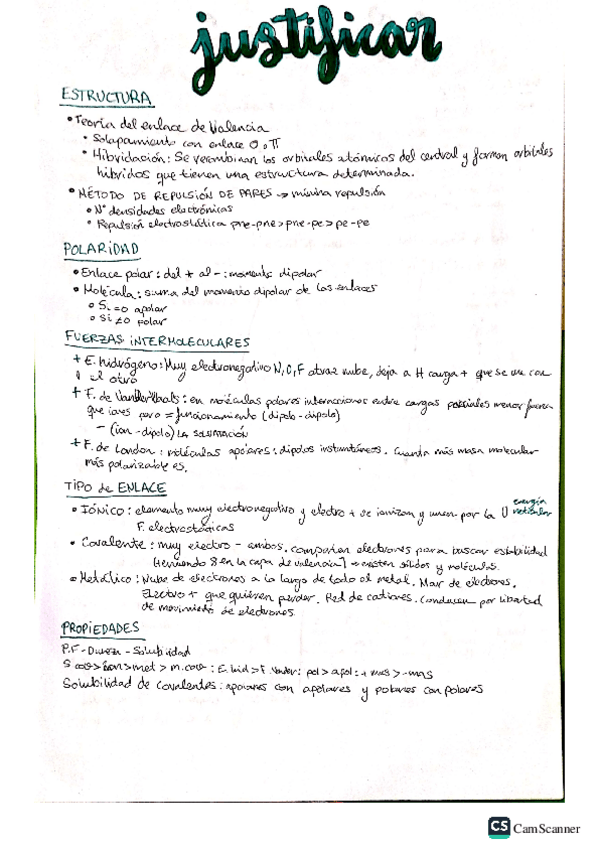 justificar
ESTRUCTURA
• Teoría del enlace de Valencia
• Solapamiento con enlace σ o π
• Hibridación: Se recombinan los orbitales atómicos del central y forman orbitales
híbridos que tienen una estructura determinada.
• MÉTODO DE REPULSIÓN DE PARES → mínima repulsión
• Nº densidades electrónicas
• Repulsión electrostática pne-pne > pne-pe > pe-pe
POLARIDAD
• Enlace polar: del + al - : momento dipolar
• Molécula: suma del momento dipolar de los enlaces
• Si =0 apolar
• Si ≠0 polar
FUERZAS INTERMOLECULARES
+ E. hidrógeno: Muy electronegativo N, O, F atrae nube, deja a H carga + que se une con
el otro
+ F. de Van der Waals: en moléculas polares interacciones entre cargas parciales menor fuerza
que iones pero = funcionamiento (dipolo-dipolo)
- (ion-dipolo) LA SOLVATACIÓN
+ F. de London: moléculas apolares: dipolos instantáneos. Cuanta más masa molecular
más polarizable es.
TIPO de ENLACE
• IÓNICO: elemento muy electronegativo y electro + se ionizan y unen por la U energía reticular
F. electrostáticas
• Covalente: muy electro - ambos. comparten electrones para buscar estabilidad
(teniendo 8 en la capa de valencia) → existen sólidos y moléculas.
• Metálico: Nube de electrones a lo largo de todo el metal. Mar de electrones.
Electro + que quieren perder. Red de cationes. Conducen por libertad
de movimiento de electrones.
PROPIEDADES
P.F - Dureza - Solubilidad
S cov > ion > met > m. cov : E. hid > F. Vander: pol > apol : + mas > - mas
Solubilidad de covalentes: apolares con apolares y polares con polares
CS CamScanner